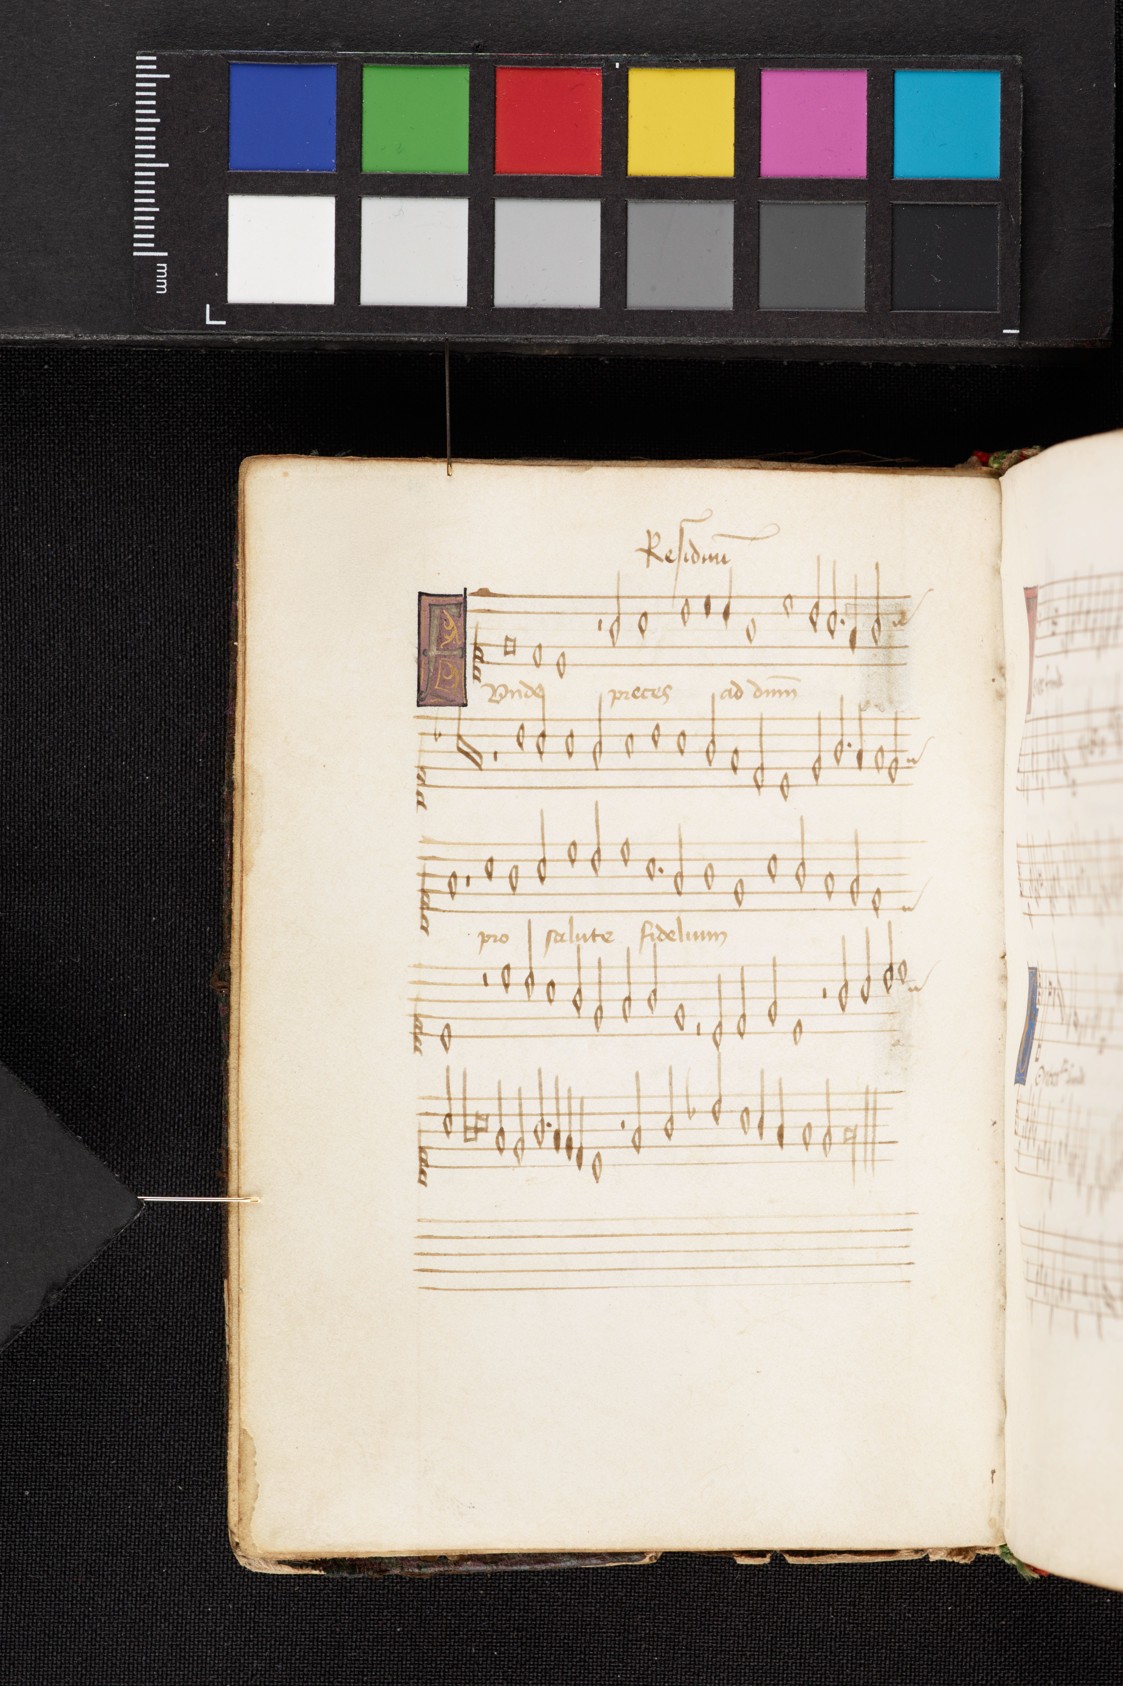 mm
Residuū
Funde preces ad dūm
pro salute fidelium